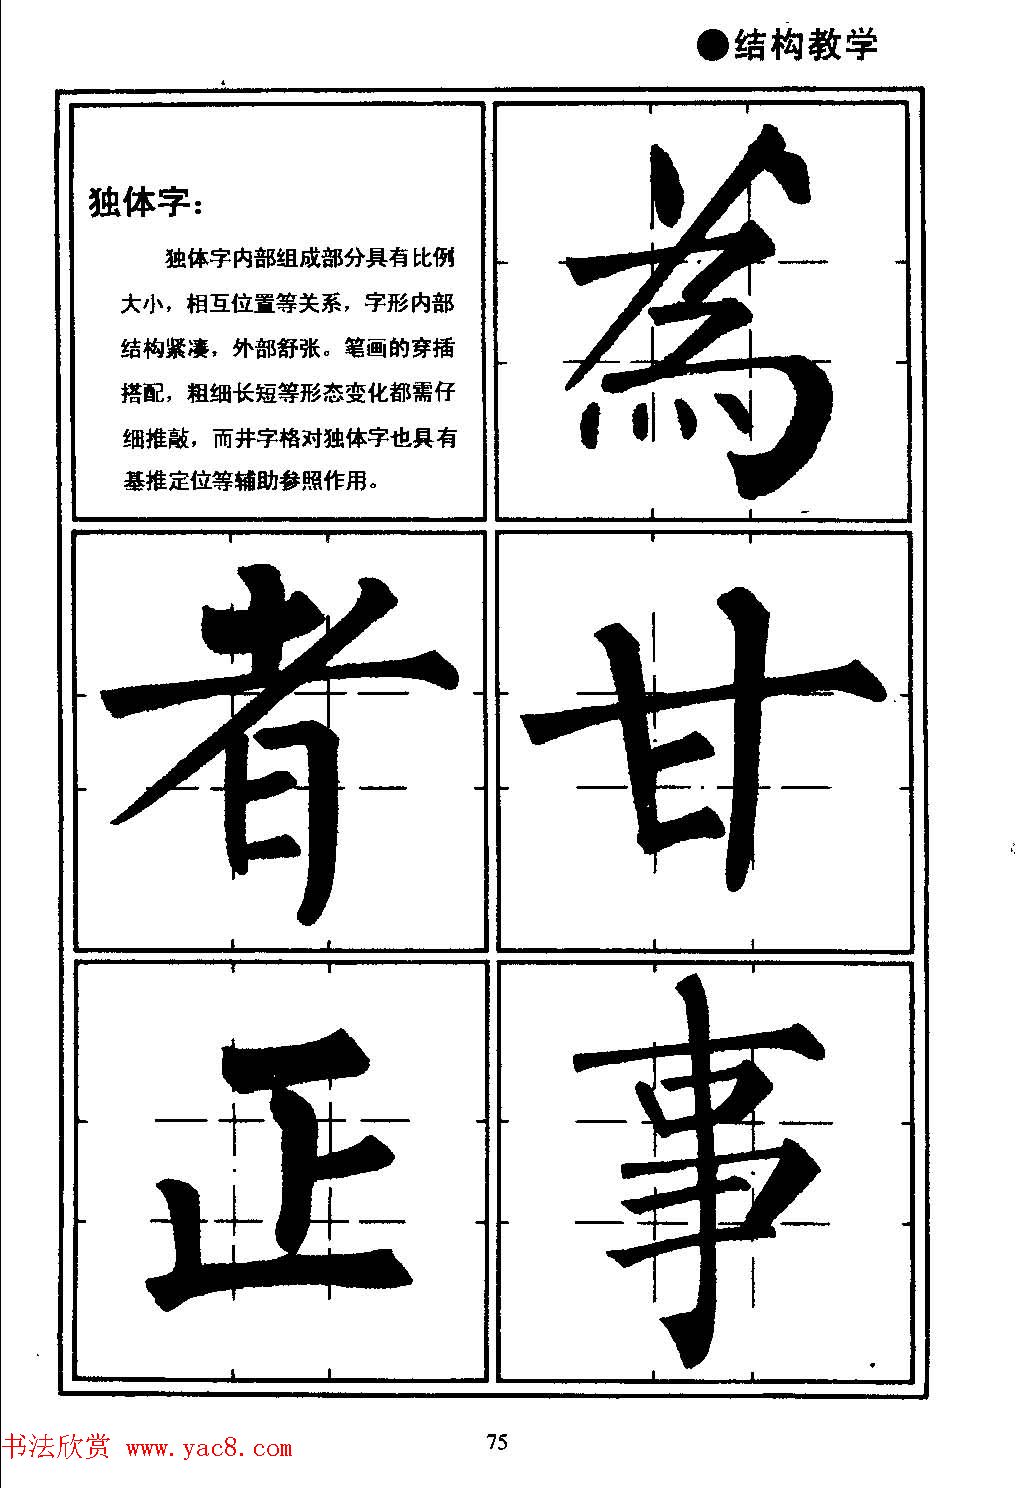 ●结构教学
独体字：
独体字内部组成部分具有比例
大小，相互位置等关系，字形内部
结构紧凑，外部舒张。笔画的穿插
搭配，粗细长短等形态变化都需仔
细推敲，而井字格对独体字也具有
基推定位等辅助参照作用。
為
者
甘
正
事
75
书法欣赏 www.yac8.com